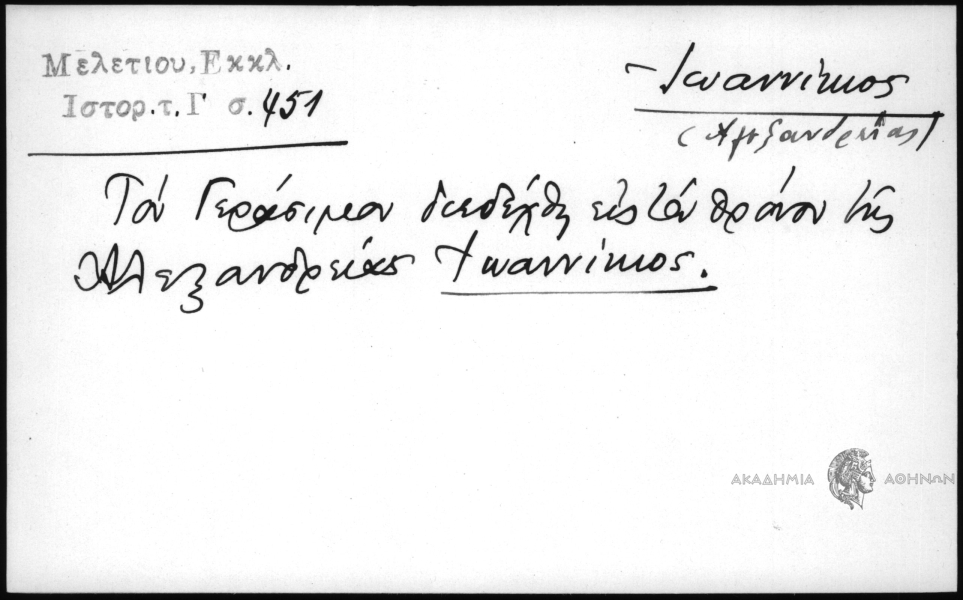 Μελετιου, Εκκλ.
Ιστορ. τ. Γ' σ. 451
Ἰωαννίκιος
(Ἀλεξανδρείας)
Τὸν Γεράσιμον διεδέχθη εἰς τὸν θρόνον τῆς
Ἀλεξανδρείας Ἰωαννίκιος.
ΑΚΑΔΗΜΙΑ ΑΘΗΝΩΝ